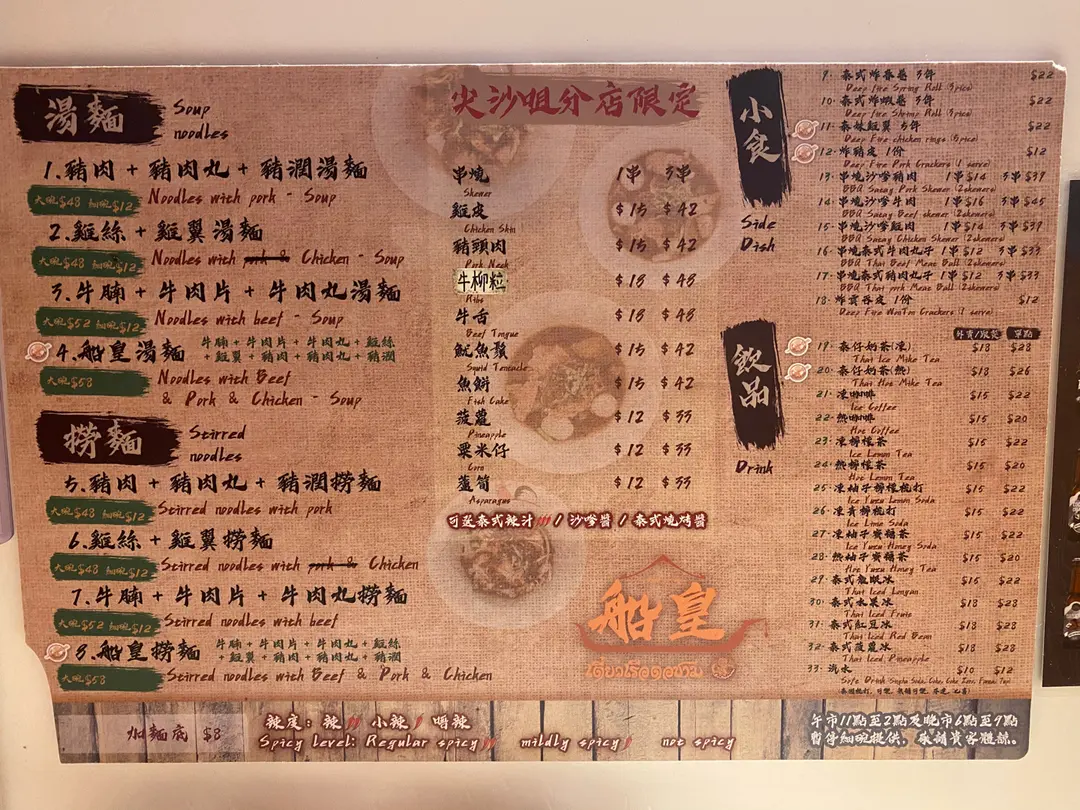 湯麵 Soup
noodles
1.豬肉 + 豬肉丸 + 豬潤湯麵
大碗$48 細碗$12 Noodles with pork - Soup
2.雞絲 + 雞翼湯麵
大碗$48 細碗$12 Noodles with pork & Chicken - Soup
3.牛腩 + 牛肉片 + 牛肉丸湯麵
大碗$52 細碗$12 Noodles with beef - Soup
4.船皇湯麵 牛腩 + 牛肉片 + 牛肉丸 + 雞絲
+ 雞翼 + 豬肉 + 豬肉丸 + 豬潤
大碗$58 Noodles with Beef
& Pork & Chicken - Soup
撈麵 Stirred
noodles
5.豬肉 + 豬肉丸 + 豬潤撈麵
大碗$48 細碗$12 Stirred noodles with pork
6.雞絲 + 雞翼撈麵
大碗$48 細碗$12 Stirred noodles with pork & Chicken
7.牛腩 + 牛肉片 + 牛肉丸撈麵
大碗$52 細碗$12 Stirred noodles with beef
8.船皇撈麵 牛腩 + 牛肉片 + 牛肉丸 + 雞絲
+ 雞翼 + 豬肉 + 豬肉丸 + 豬潤
大碗$58 Stirred noodles with Beef & Pork & Chicken
尖沙咀分店限定
串燒 1串 3串
Skewer
雞皮 $15 $42
Chicken Skin
豬頸肉 $15 $42
Pork Neck
牛柳粒 $18 $48
Ribs
牛舌 $18 $48
Beef Tongue
魷魚鬚 $15 $42
Squid Tentacle
魚餅 $15 $42
Fish Cake
菠蘿 $12 $33
Pineapple
粟米仔 $12 $33
Corn
蘆筍 $12 $33
Asparagus
可選泰式辣汁 / 沙嗲醬 / 泰式燒烤醬
船皇
小食
Side
Dish
9. 泰式炸春卷 3件 $22
Deep fire Spring Roll (3pics)
10. 泰式炸蝦卷 3件 $22
Deep fire Shrimp Roll (3pics)
11. 泰妹雞翼 5件 $22
Deep Fire chicken rings (5pics)
12. 炸豬皮 1份 $12
Deep Fire Pork Crackers (1 serve)
13. 串燒沙嗲豬肉 1串$14 3串$39
BBQ Satay Pork Skewer (2skewers)
14. 串燒沙嗲牛肉 1串$16 3串$45
BBQ Satay Beef skewer (2skewers)
15. 串燒沙嗲雞肉 1串$14 3串$39
BBQ Satay Chicken Skewer (2skewers)
16. 串燒泰式牛肉丸子 1串$12 3串$33
BBQ Thai Beef Meat Ball (2skewers)
17. 串燒泰式豬肉丸子 1串$12 3串$33
BBQ Thai pork Meat Ball (2skewers)
18. 炸雲吞皮 1份 $12
Deep Fire WonTon Crackers (1 serve)
飲品
Drink
外賣/跟餐 單點
19. 泰仔奶茶(凍) $18 $28
Thai Ice Milke Tea
20. 泰仔奶茶(熱) $18 $26
Thai Hot Milke Tea
21. 凍咖啡 $15 $22
Ice Coffee
22. 熱咖啡 $15 $20
Hot Coffee
23. 凍檸檬茶 $15 $22
Ice Lemon Tea
24. 熱檸檬茶 $15 $20
Hot Lemon Tea
25. 凍柚子檸檬梳打 $15 $22
Ice Yuzu Lemon Soda
26. 凍青檸梳打 $15 $22
Ice Lime Soda
27. 凍柚子蜜糖茶 $15 $22
Ice Yuzu Honey Soda
28. 熱柚子蜜糖茶 $15 $20
Hot Yuzu Honey Tea
29. 泰式龍眼冰 $15 $22
Thai Iced Longan
30. 泰式水果冰 $18 $28
Thai Iced Fruit
31. 泰式紅豆冰 $18 $28
Thai Iced Red Bean
32. 泰式菠蘿冰 $18 $28
Thai Iced Pineapple
33. 汽水 $10 $12
加麵底 $8
辣度: 辣 小辣 唔辣
Spicy Level: Regular spicy mildly spicy not spicy
午市11點至2點及晚市6點至9點
暫停細碗提供, 敬請貴客體諒。